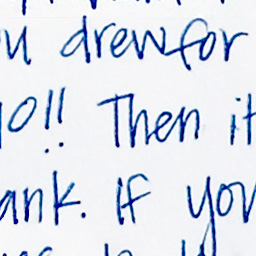 drew for
!! Then it
ank. If you